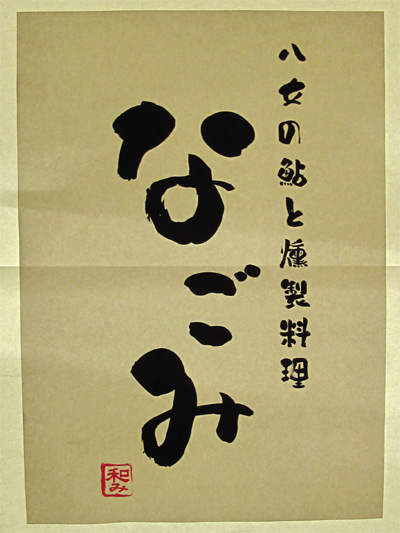 八女の鮎と燻製料理
なごみ
和み